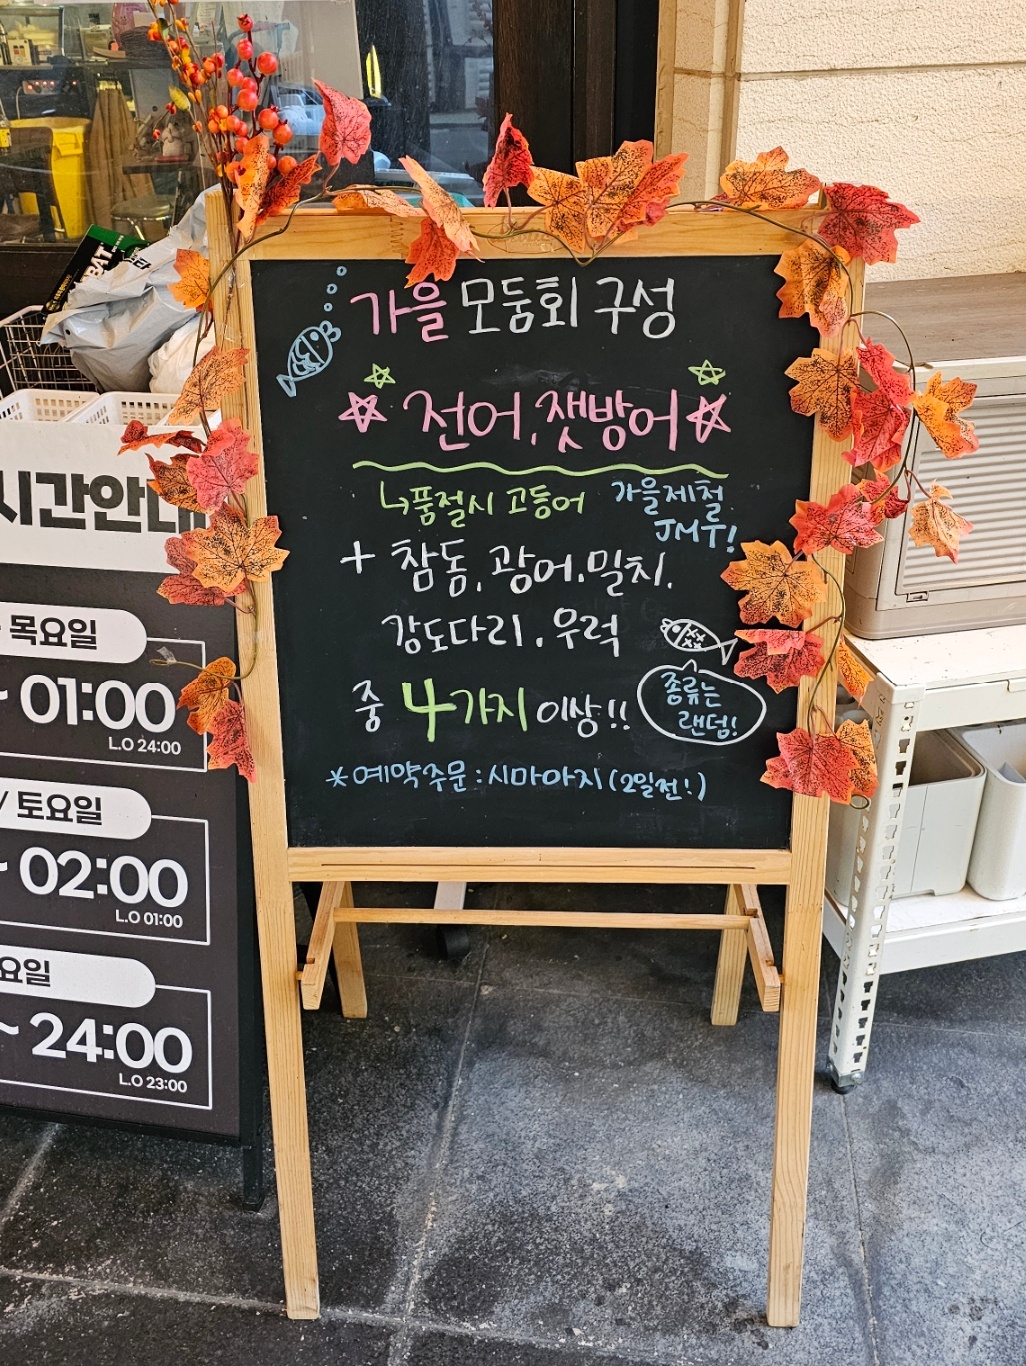 가을 모둠회 구성
전어, 잿방어
↳품절시 고등어
가을제철
JMT!
+ 참돔, 광어, 밀치,
강도다리, 우럭
중 4가지 이상!!
종류는
랜덤!
*예약주문 : 시마아지 (2일전!)
시간안내
목요일
~ 01:00
L.O 24:00
/ 토요일
~ 02:00
L.O 01:00
요일
~ 24:00
L.O 23:00